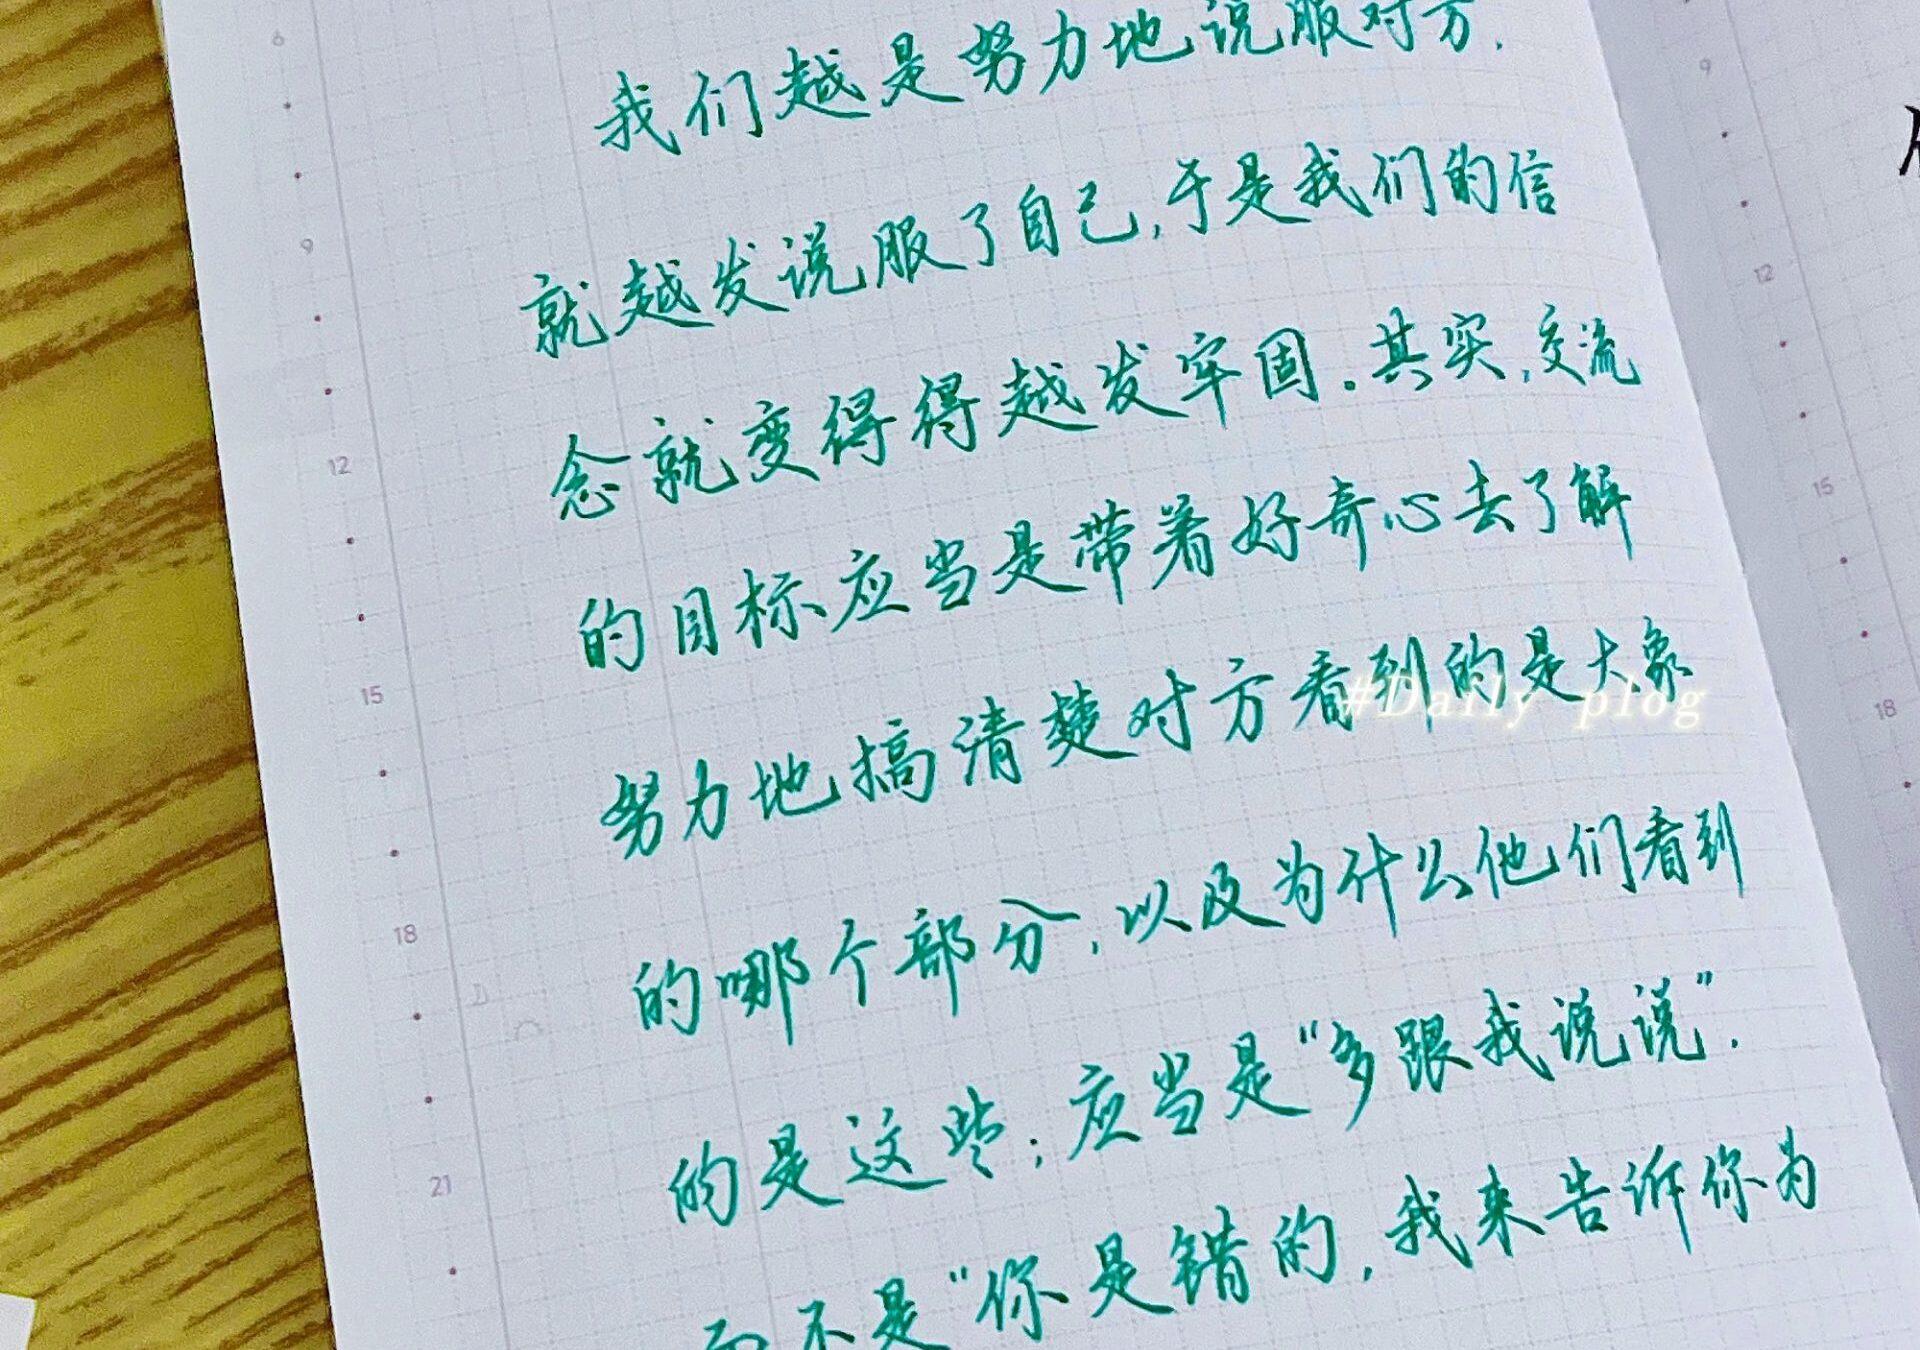 我们越是努力地说服对方，
就越发说服了自己，于是我们的信
念就变得得越发牢固。其实，交流
的目标应当是带着好奇心去了解
努力地搞清楚对方看到的是大象
#Daily plog
的哪个部分，以及为什么他们看到
的是这些；应当是“多跟我说说”，
而不是“你是错的，我来告诉你为
6
9
12
15
18
21
9
12
15
18